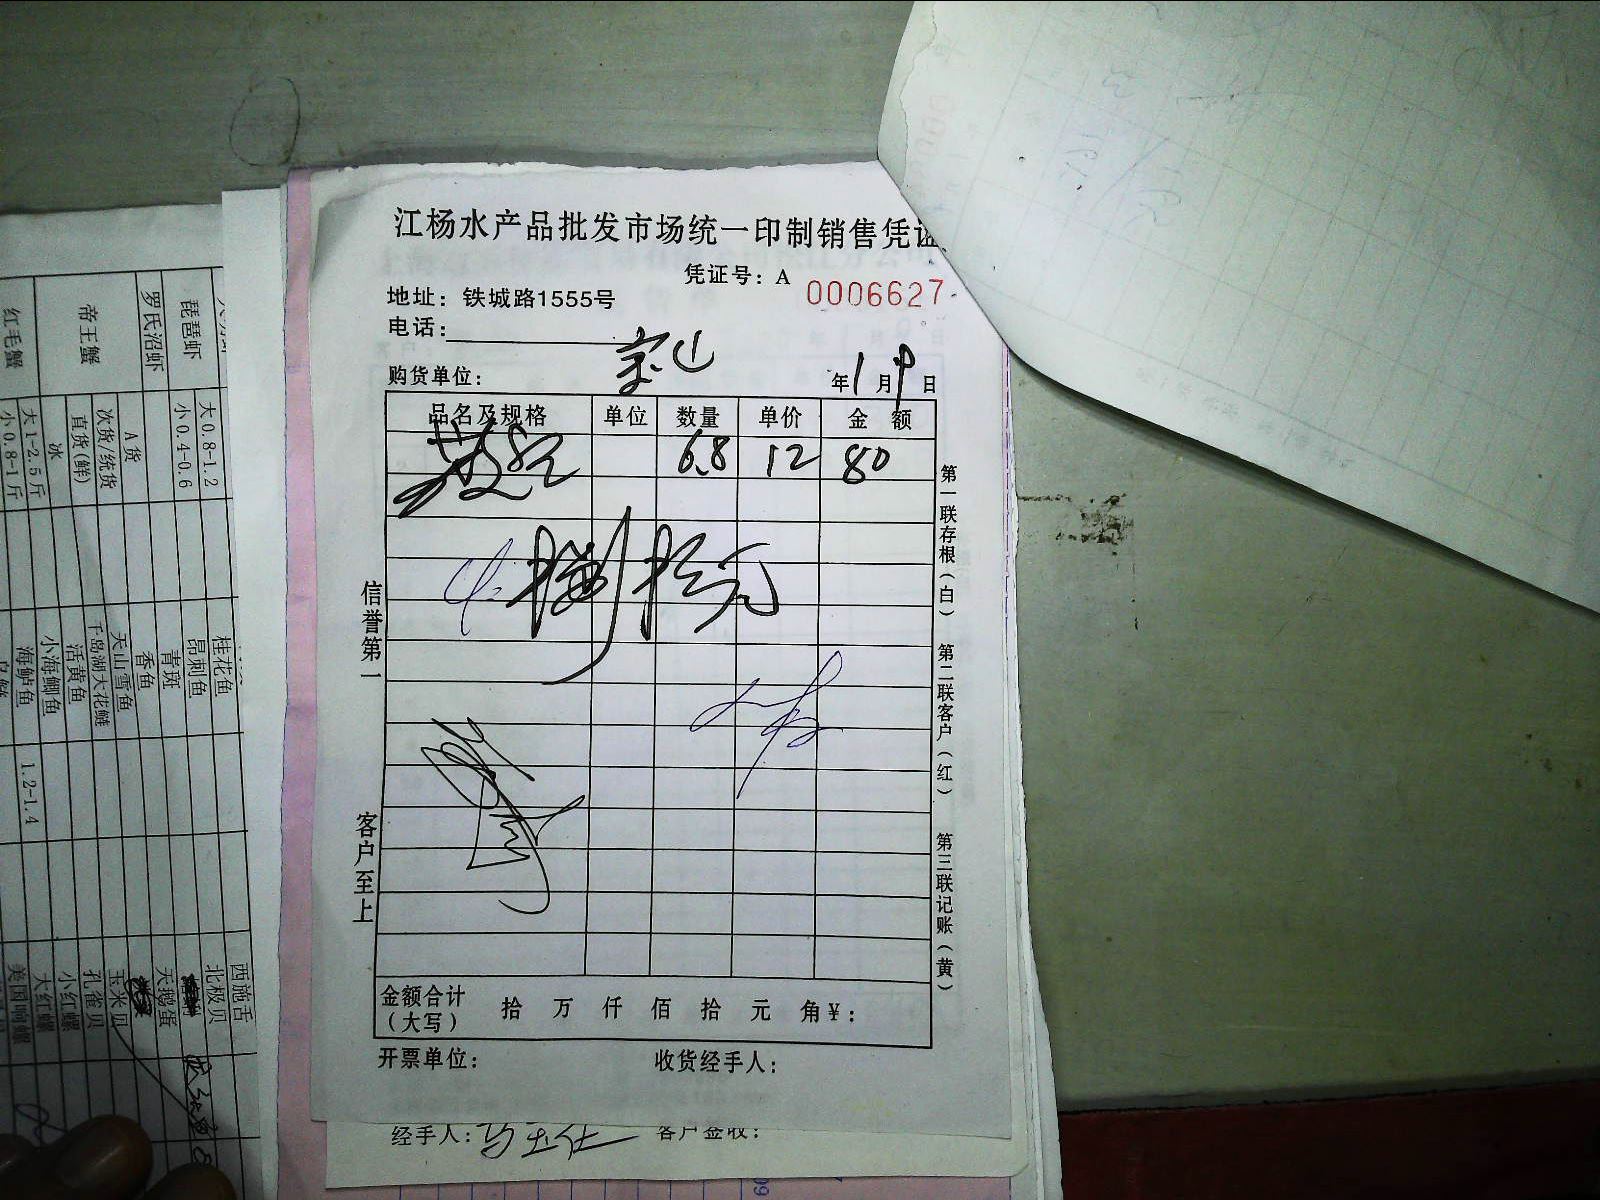 江杨水产品批发市场统一印制销售凭证
凭证号：A 0006627
地址：铁城路1555号
电话：
购货单位： 宝山 年1月9日
品名及规格 单位 数量 单价 金额
6.8 12 80
捌拾元
信誉第一
客户至上
第一联存根（白） 第二联客户（红） 第三联记账（黄）
金额合计（大写） 拾 万 仟 佰 拾 元 角￥：
开票单位： 收货经手人：
经手人： 客户签收：
琵琶虾 大0.8-1.2
小0.4-0.6
罗氏沼虾
帝王蟹 A货
次货/统货
直货(鲜)
冰
红毛蟹 大1-2.5斤
小0.8-1斤
桂花鱼
昂刺鱼
青斑
香鱼
天山雪鱼
千岛湖大花鲢
活黄鱼
小海鲫鱼
海鲈鱼 1.2-1.4
西施舌
北极贝
天鹅蛋
玉米贝
孔雀贝
小红螺
大红螺
美国响螺